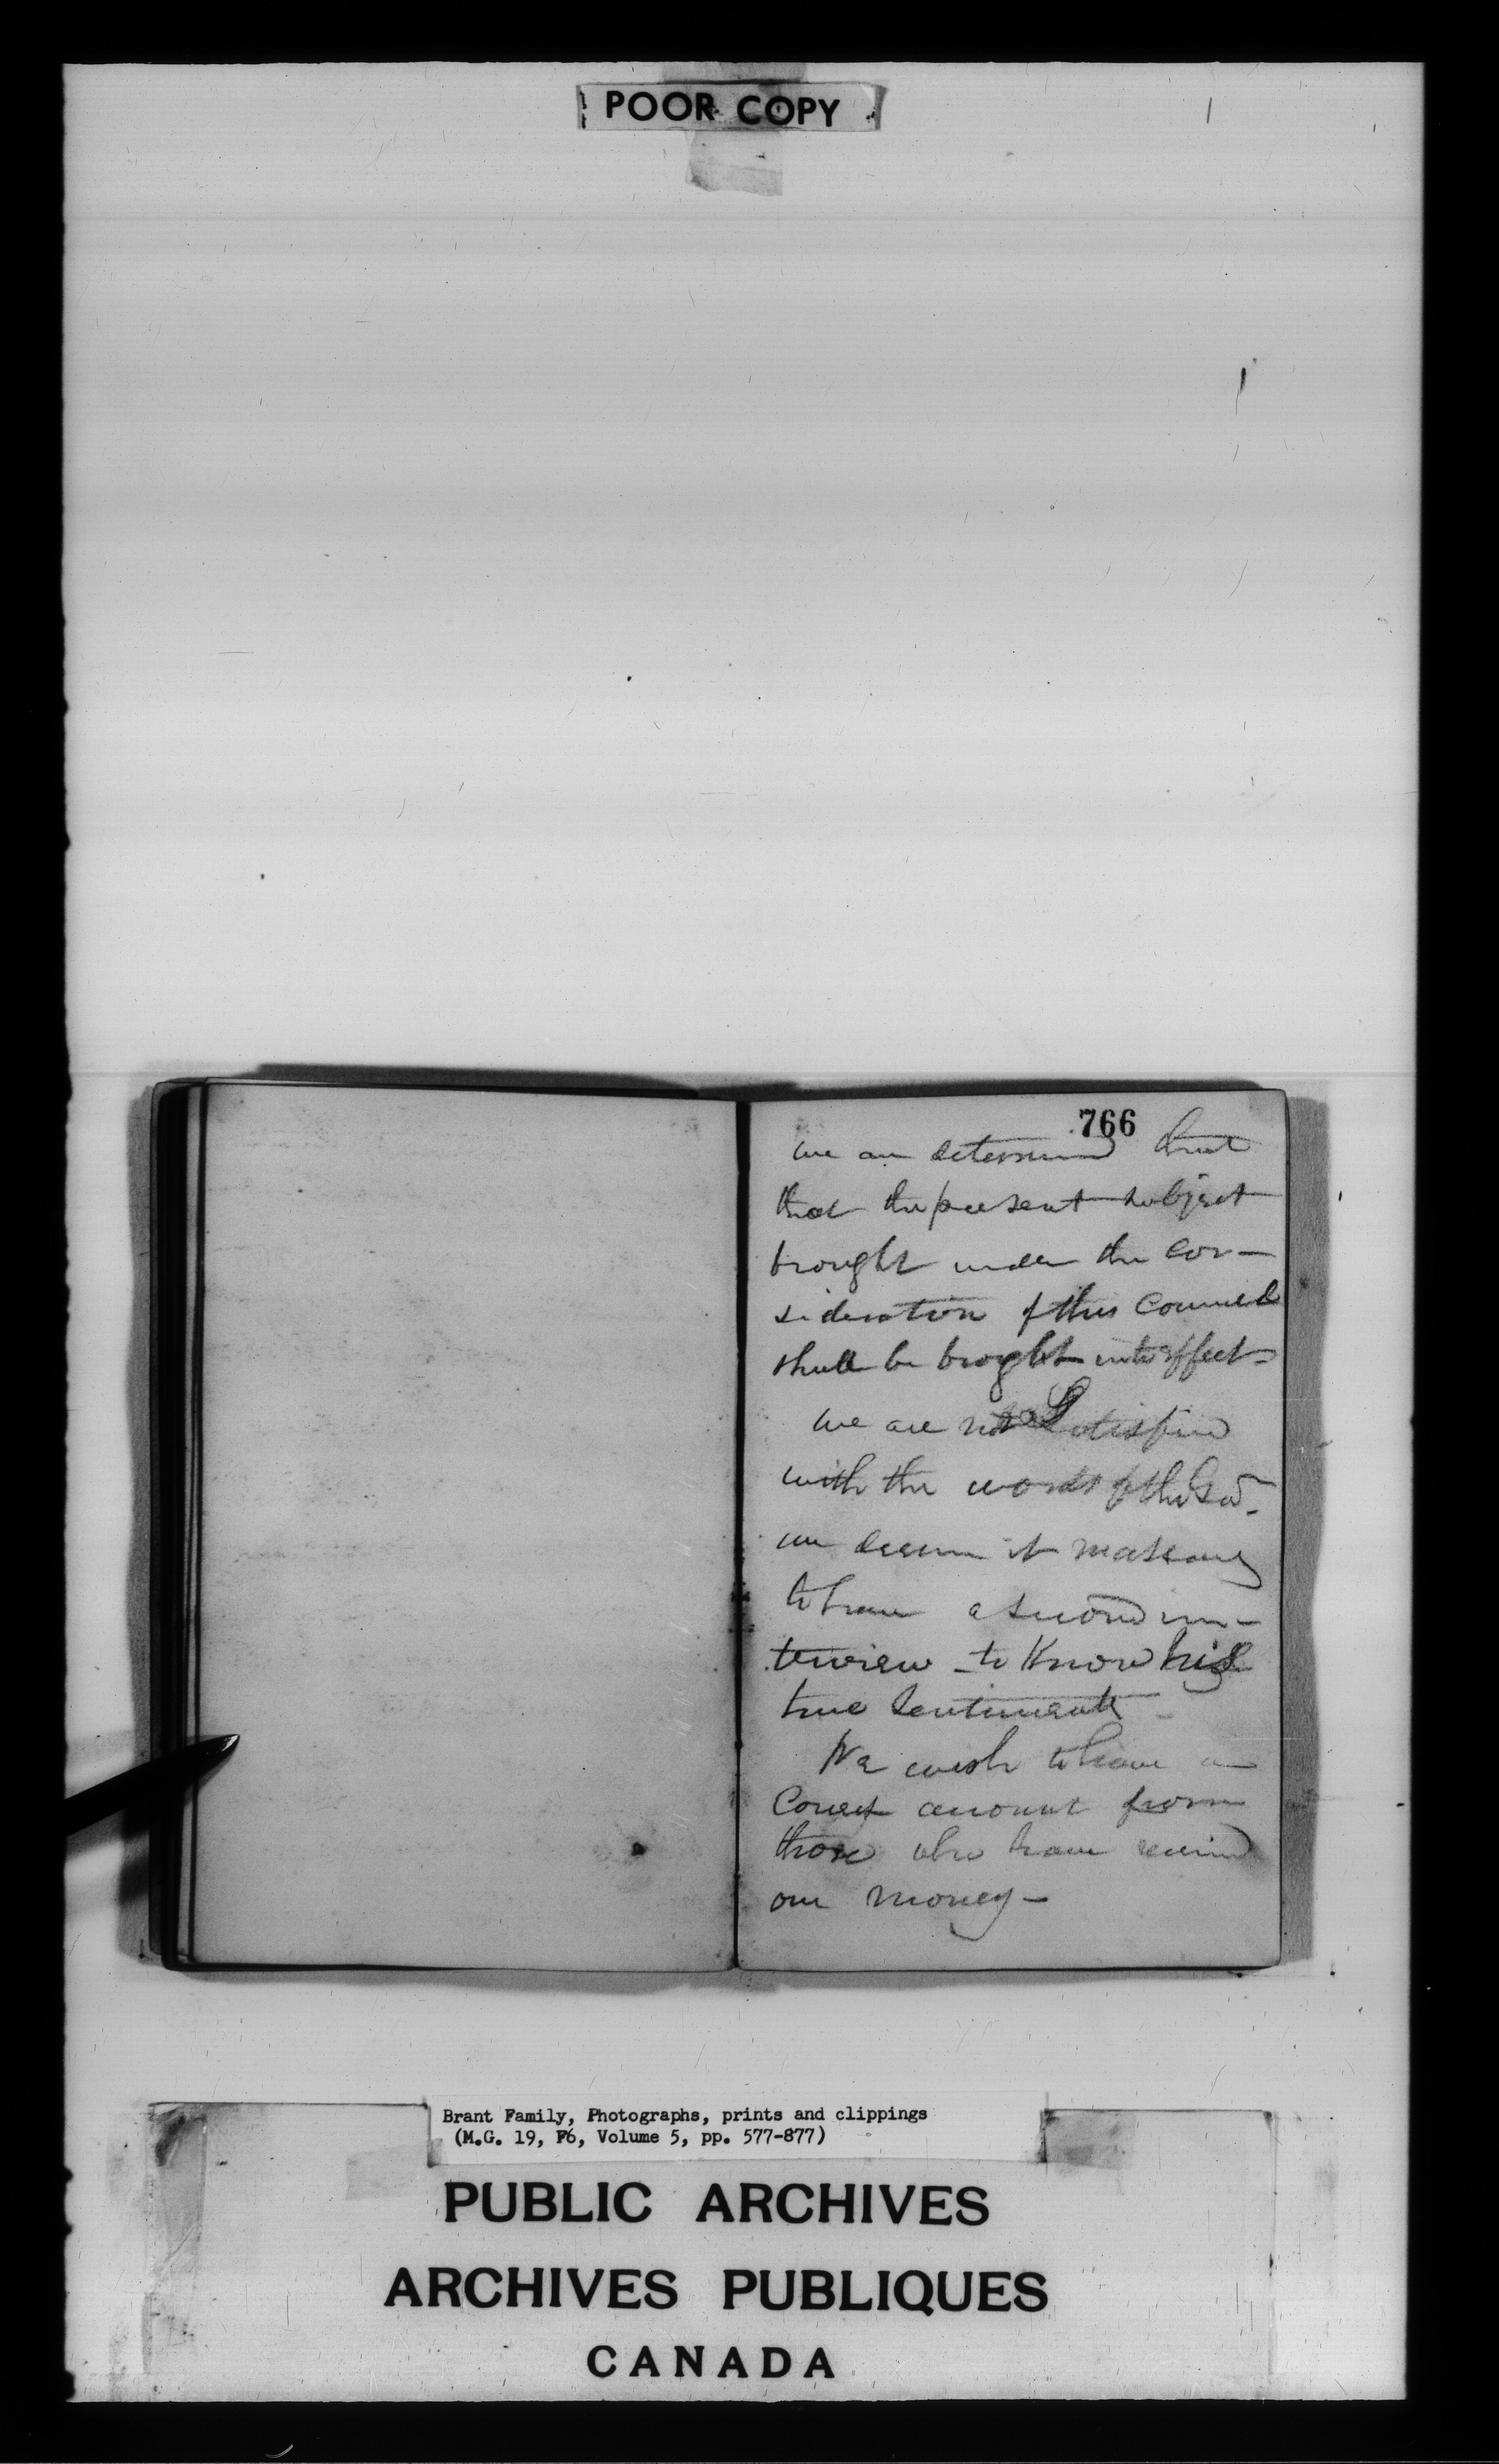 POOR COPY
766
we are determined
that the present subject
brought under the con-
sideration of this Council
shall be broght into effect-
we are not Satisfied
with the words of the Gov-
we deem it necessary
to have a second in-
terview to Know his
true Sentiments -
We wish to have a
Correct account from
those who have received
our money -
Brant Family, Photographs, prints and clippings
(M.G. 19, F6, Volume 5, pp. 577-877)
PUBLIC ARCHIVES
ARCHIVES PUBLIQUES
CANADA